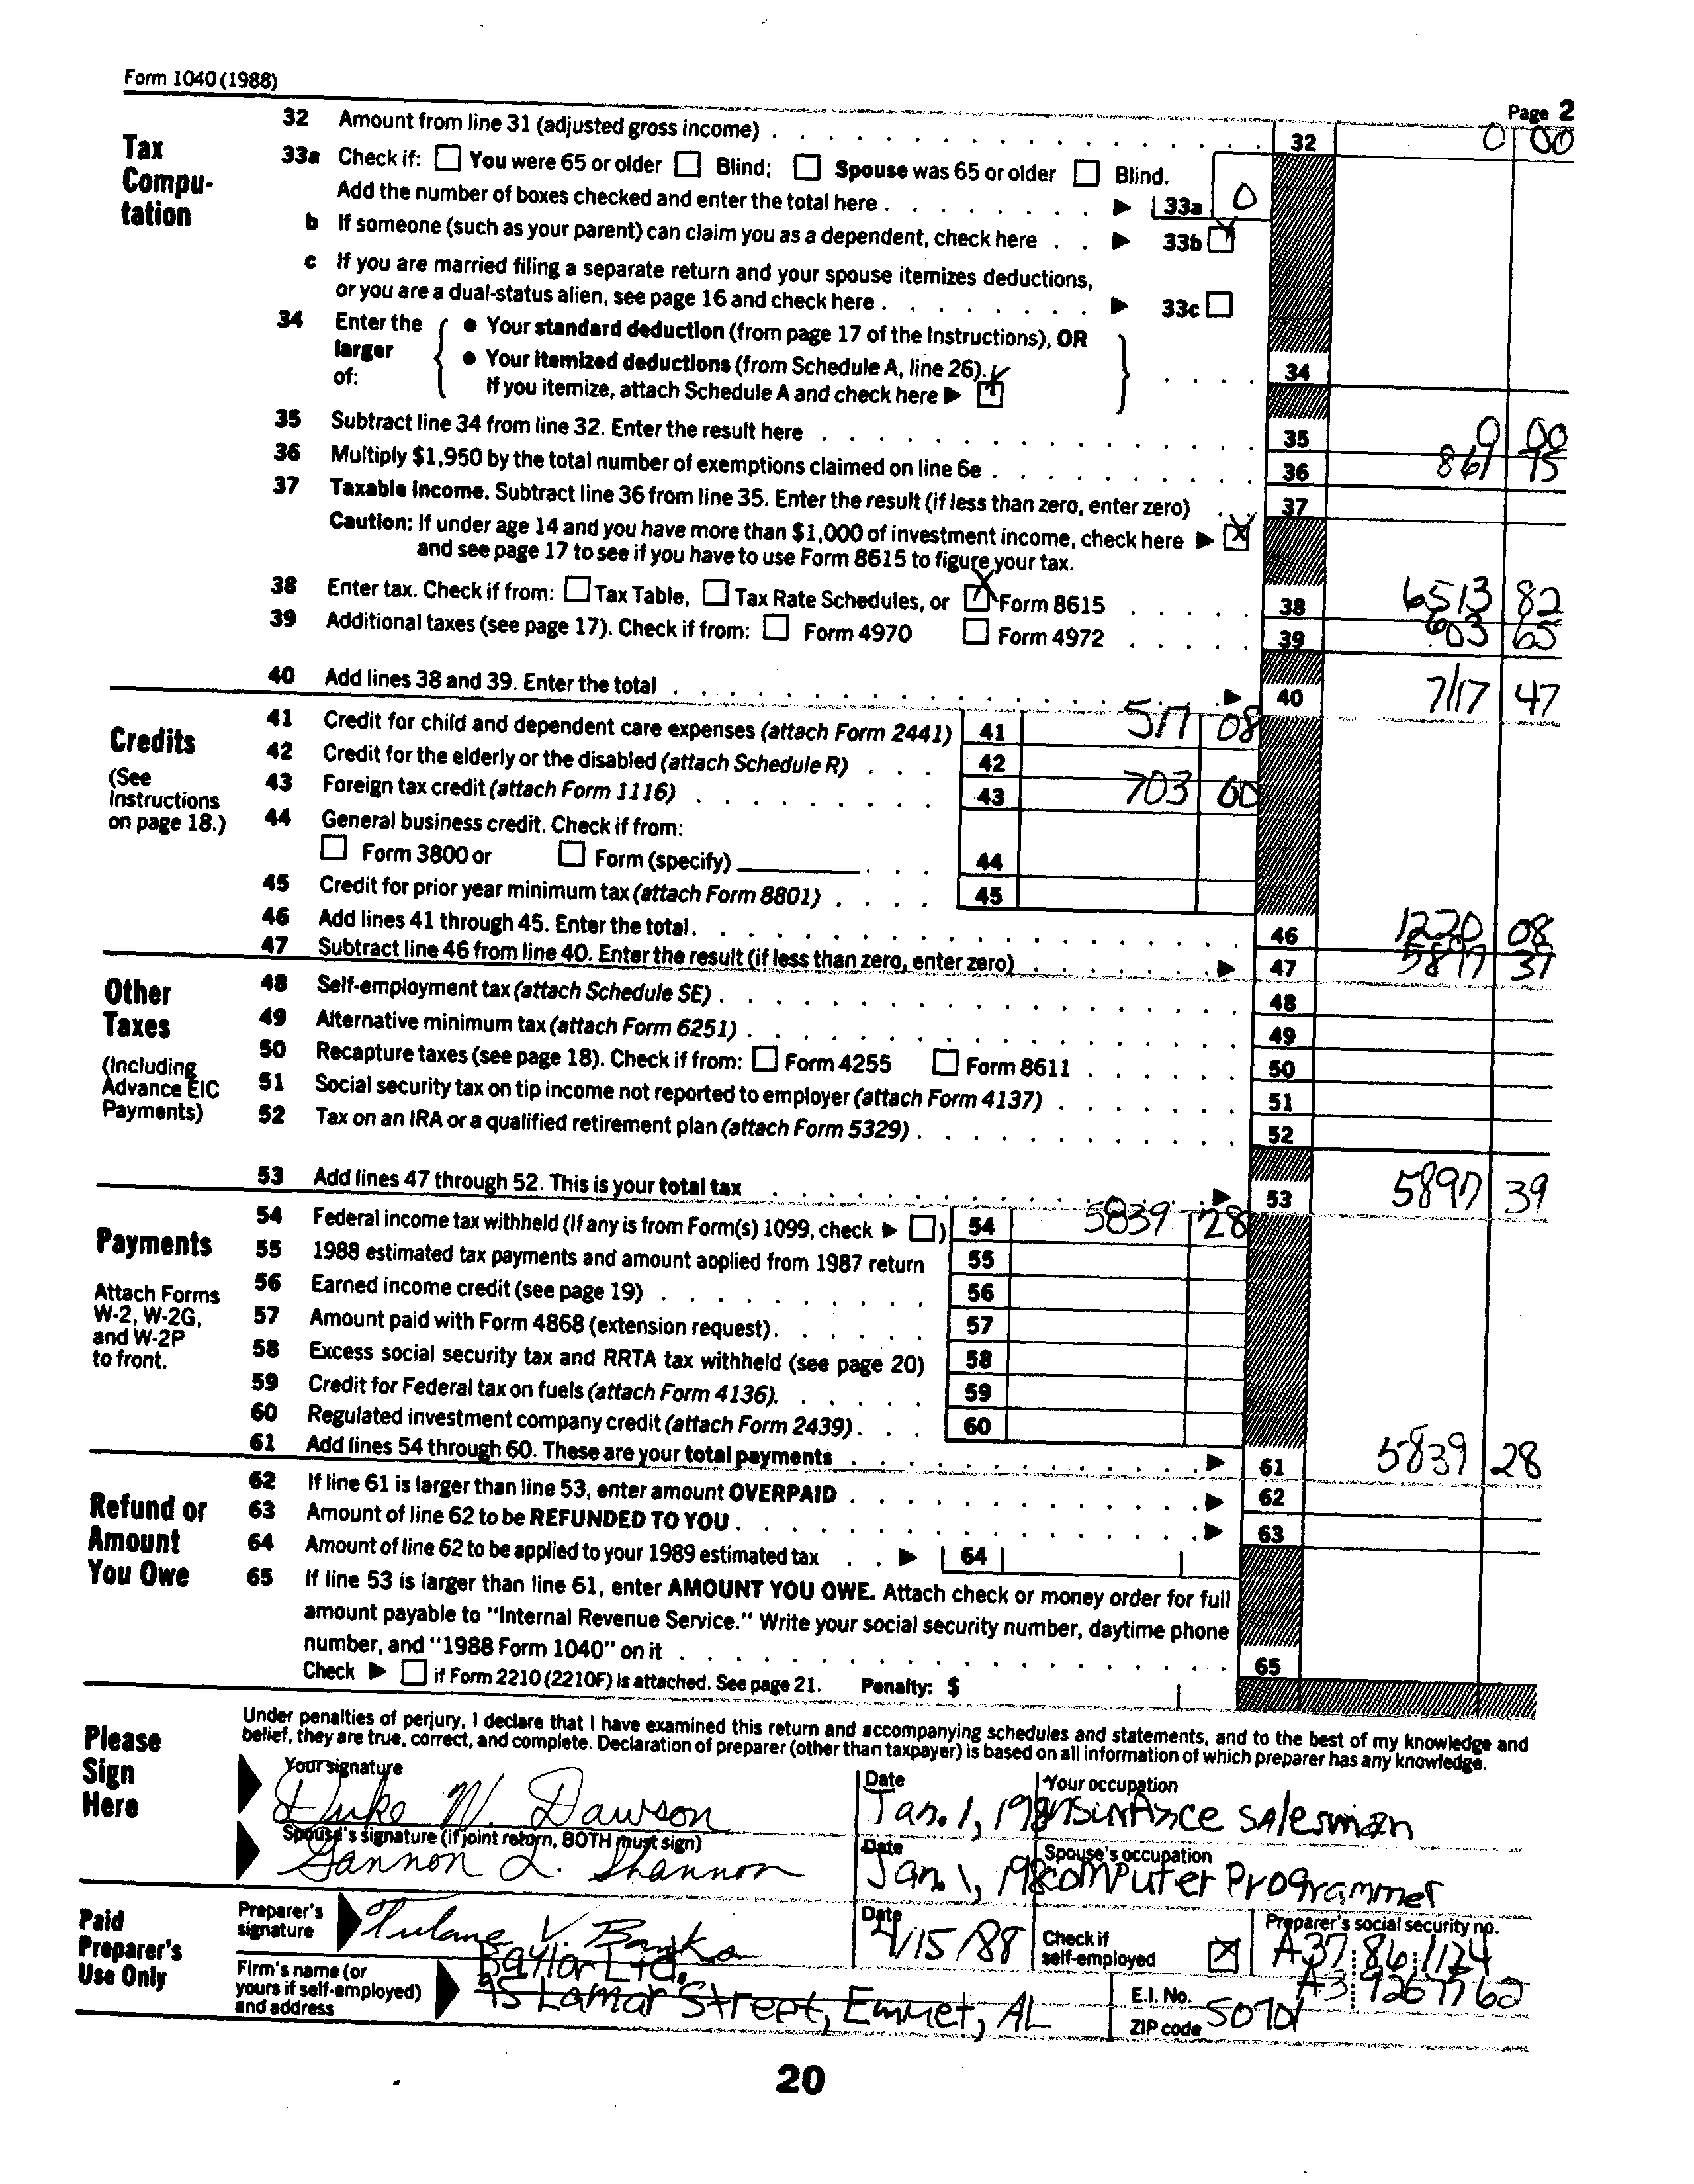 Form 1040 (1988)
Page 2
Tax Compu-tation
32 Amount from line 31 (adjusted gross income) 32 0 00
33a Check if: You were 65 or older Blind; Spouse was 65 or older Blind.
Add the number of boxes checked and enter the total here 33a 0
b If someone (such as your parent) can claim you as a dependent, check here 33b
c If you are married filing a separate return and your spouse itemizes deductions,
or you are a dual-status alien, see page 16 and check here 33c
34 Enter the larger of:
● Your standard deduction (from page 17 of the Instructions), OR
● Your itemized deductions (from Schedule A, line 26).
If you itemize, attach Schedule A and check here
34
35 Subtract line 34 from line 32. Enter the result here 35 0 00
36 Multiply $1,950 by the total number of exemptions claimed on line 6e 36 861 75
37 Taxable income. Subtract line 36 from line 35. Enter the result (if less than zero, enter zero) 37
Caution: If under age 14 and you have more than $1,000 of investment income, check here
and see page 17 to see if you have to use Form 8615 to figure your tax.
38 Enter tax. Check if from: Tax Table, Tax Rate Schedules, or Form 8615 38 6513 82
39 Additional taxes (see page 17). Check if from: Form 4970 Form 4972 39 603 65
40 Add lines 38 and 39. Enter the total 40 7117 47
Credits
(See Instructions on page 18.)
41 Credit for child and dependent care expenses (attach Form 2441) 41 517 08
42 Credit for the elderly or the disabled (attach Schedule R) 42
43 Foreign tax credit (attach Form 1116) 43 703 00
44 General business credit. Check if from:
Form 3800 or Form (specify) 44
45 Credit for prior year minimum tax (attach Form 8801) 45
46 Add lines 41 through 45. Enter the total. 46 1220 08
47 Subtract line 46 from line 40. Enter the result (if less than zero, enter zero) 47 5897 39
Other Taxes
(Including Advance EIC Payments)
48 Self-employment tax (attach Schedule SE) 48
49 Alternative minimum tax (attach Form 6251) 49
50 Recapture taxes (see page 18). Check if from: Form 4255 Form 8611 50
51 Social security tax on tip income not reported to employer (attach Form 4137) 51
52 Tax on an IRA or a qualified retirement plan (attach Form 5329) 52
53 Add lines 47 through 52. This is your total tax 53 5897 39
Payments
Attach Forms W-2, W-2G, and W-2P to front.
54 Federal income tax withheld (If any is from Form(s) 1099, check ) 54 5839 28
55 1988 estimated tax payments and amount applied from 1987 return 55
56 Earned income credit (see page 19) 56
57 Amount paid with Form 4868 (extension request) 57
58 Excess social security tax and RRTA tax withheld (see page 20) 58
59 Credit for Federal tax on fuels (attach Form 4136). 59
60 Regulated investment company credit (attach Form 2439) 60
61 Add lines 54 through 60. These are your total payments 61 5839 28
Refund or Amount You Owe
62 If line 61 is larger than line 53, enter amount OVERPAID 62
63 Amount of line 62 to be REFUNDED TO YOU 63
64 Amount of line 62 to be applied to your 1989 estimated tax 64
65 If line 53 is larger than line 61, enter AMOUNT YOU OWE. Attach check or money order for full
amount payable to "Internal Revenue Service." Write your social security number, daytime phone
number, and "1988 Form 1040" on it 65
Check if Form 2210 (2210F) is attached. See page 21. Penalty: $
Please Sign Here
Under penalties of perjury, I declare that I have examined this return and accompanying schedules and statements, and to the best of my knowledge and
belief, they are true, correct, and complete. Declaration of preparer (other than taxpayer) is based on all information of which preparer has any knowledge.
Your signature Date Your occupation
Duke W. Dawson Jan. 1, 198 insurance salesman
Spouse's signature (if joint return, BOTH must sign) Date Spouse's occupation
Gannon L. Shannon Jan. 1, 198 computer Programmer
Paid Preparer's Use Only
Preparer's signature Tulane V. Banks Date 4/15/88 Check if self-employed Preparer's social security no. A37:86:1124
Firm's name (or yours if self-employed) and address
Baylor Ltd. E.I. No. A3 9267762
95 Lamar Street, Emmet, AL ZIP code 50701
20